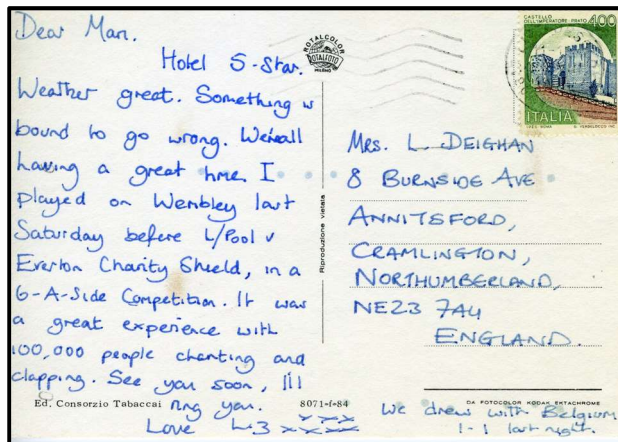 Dear Mam.
Hotel 5-Star.
Weather great. Something is
bound to go wrong. We're all
having a great time. I
played on Wembley last
Saturday before L/Pool v
Everton Charity Shield, in a
6-A-Side Competition. It was
a great experience with
100,000 people chanting and
clapping. See you soon, I'll
ring you.
Love L3 xxx
xxxx
Ed. Consorzio Tabaccai
8071-f-84
ROTALCOLOR
ROTALFOTO
MILANO
Riproduzione vietata
CASTELLO
DELL'IMPERATORE · PRATO
400
ITALIA
MRS. L. DEIGHAN
8 BURNSIDE AVE
ANNITSFORD,
CRAMLINGTON,
NORTHUMBERLAND,
NE23 7AU
ENGLAND.
DA FOTOCOLOR KODAK EKTACHROME
We drew with Belgium
1-1 last night.